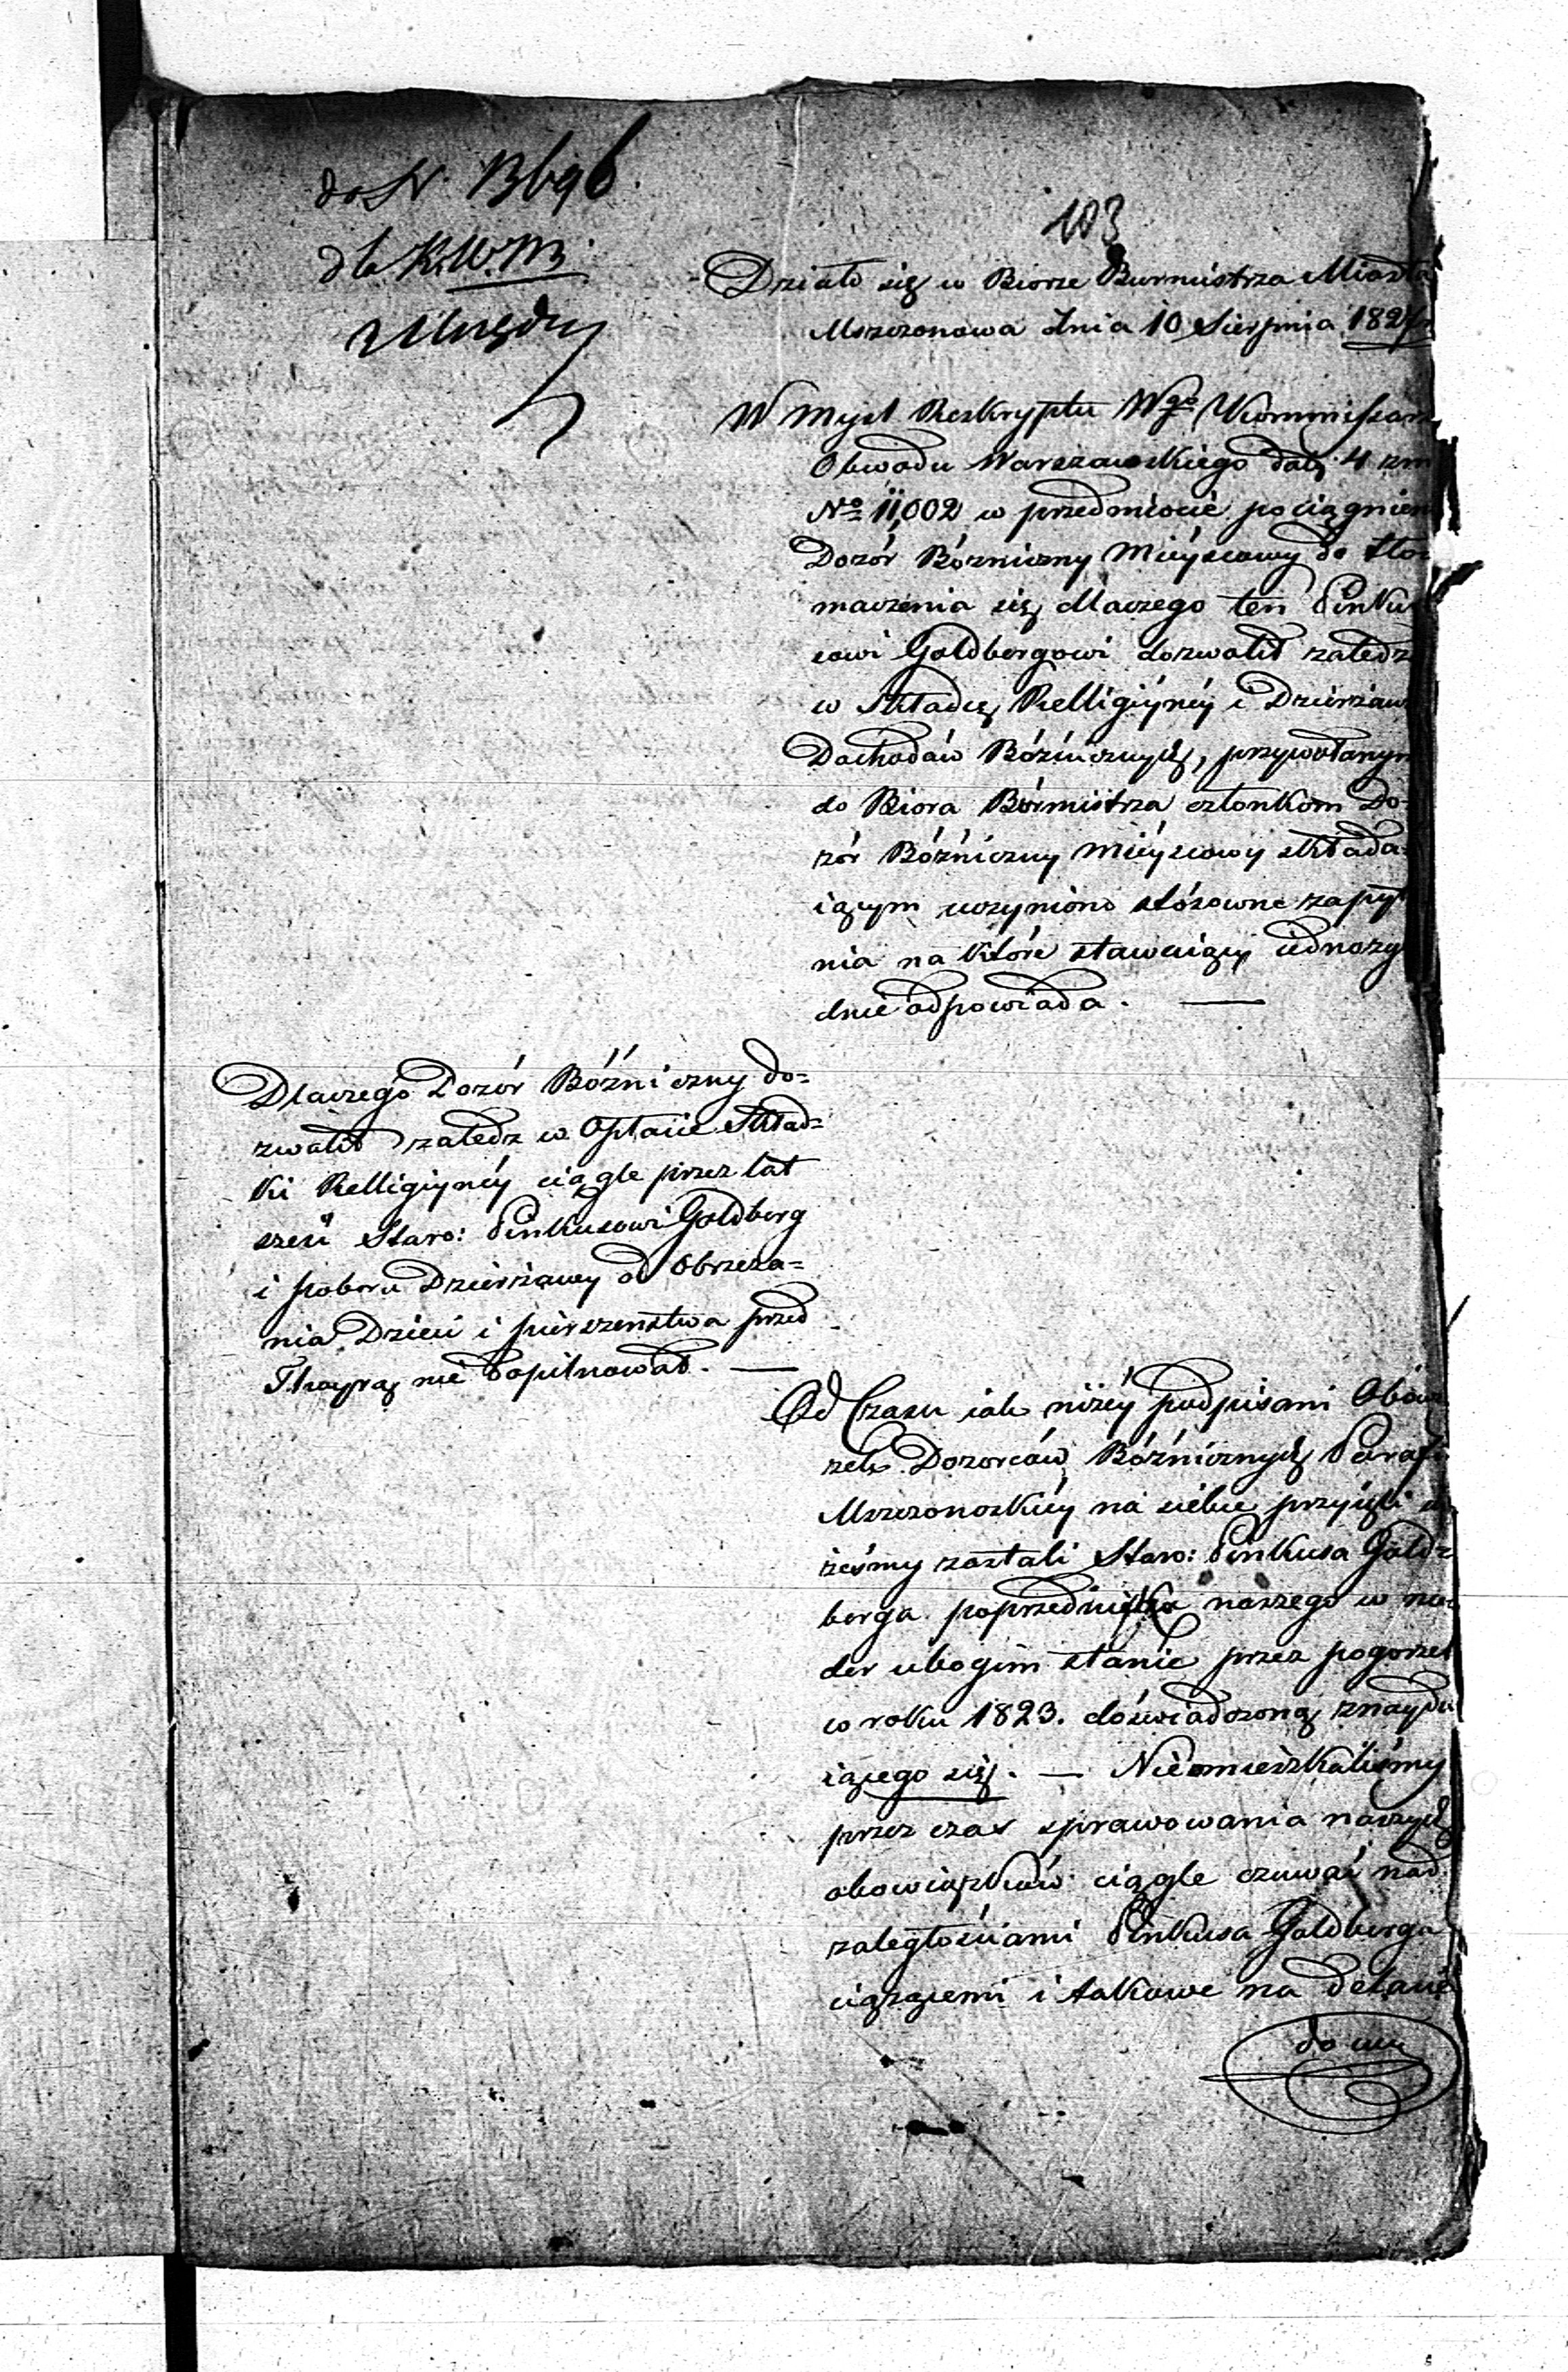 do N. 13696.
dla K.W.M.
103
Działo się w Biorze Burmistrza Miasta
Mszczonowa dnia 10 Sierpnia 182
W Myśl Reskryptu Wgo Kommissarz
Obwodu Warszawskiego daty 4 zm
No 11,002 w przedmiocie pociągnien
Dozór Bóżniczny Mieyscowy do tło
maczenia się dlaczego ten Pinku
sowi Goldbergowi dozwolił zaledz
w Składce Relligiyney i Dzierzaw
Dochodów Bóźnicznych, przywołanym
do Biora Bórmistrza członkom Do-
zór Bóźniczny Mieyscowy składa-
iącym uczyniono stósowne zapyt
nia na które stawaiący iednozgo
dnie odpowiada. —
Dlaczego Dozór Bóźniczny do=
zwolił zaledz w Opłacie Skład=
ki Relligiyney ciągle przez lat
sześć Staro: Pinkusowi Goldberg
i poboru Dzierżawy od Obrzeza=
nia Dzieci i pierszenstwa przed
Thorą nie dopilnował. —
Od Czasu iak niżey podpisani Obow
zek Dozorców Bóźnicznych Parafi
Mszczonoskiey na siebie przyięli
żeśmy zastali Staro: Pinkusa Gold=
berga poprzednika naszego w
der ubogim stanie przez pogorzel
w roku 1823. doświadczoną znaydu
iącego się. — Nieomieszkaliśmy
przez czas sprawowania naszych
obowiązków ciągle czuwać nad
zaległościami Pinkusa Goldberga
ciążącemi i takowe na
do